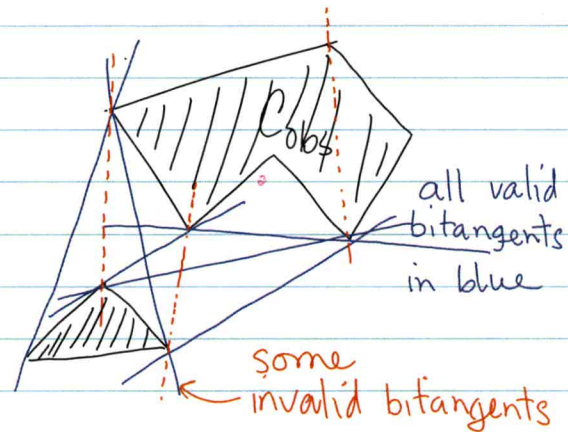 Cobs
all valid
bitangents
in blue
some
invalid bitangents